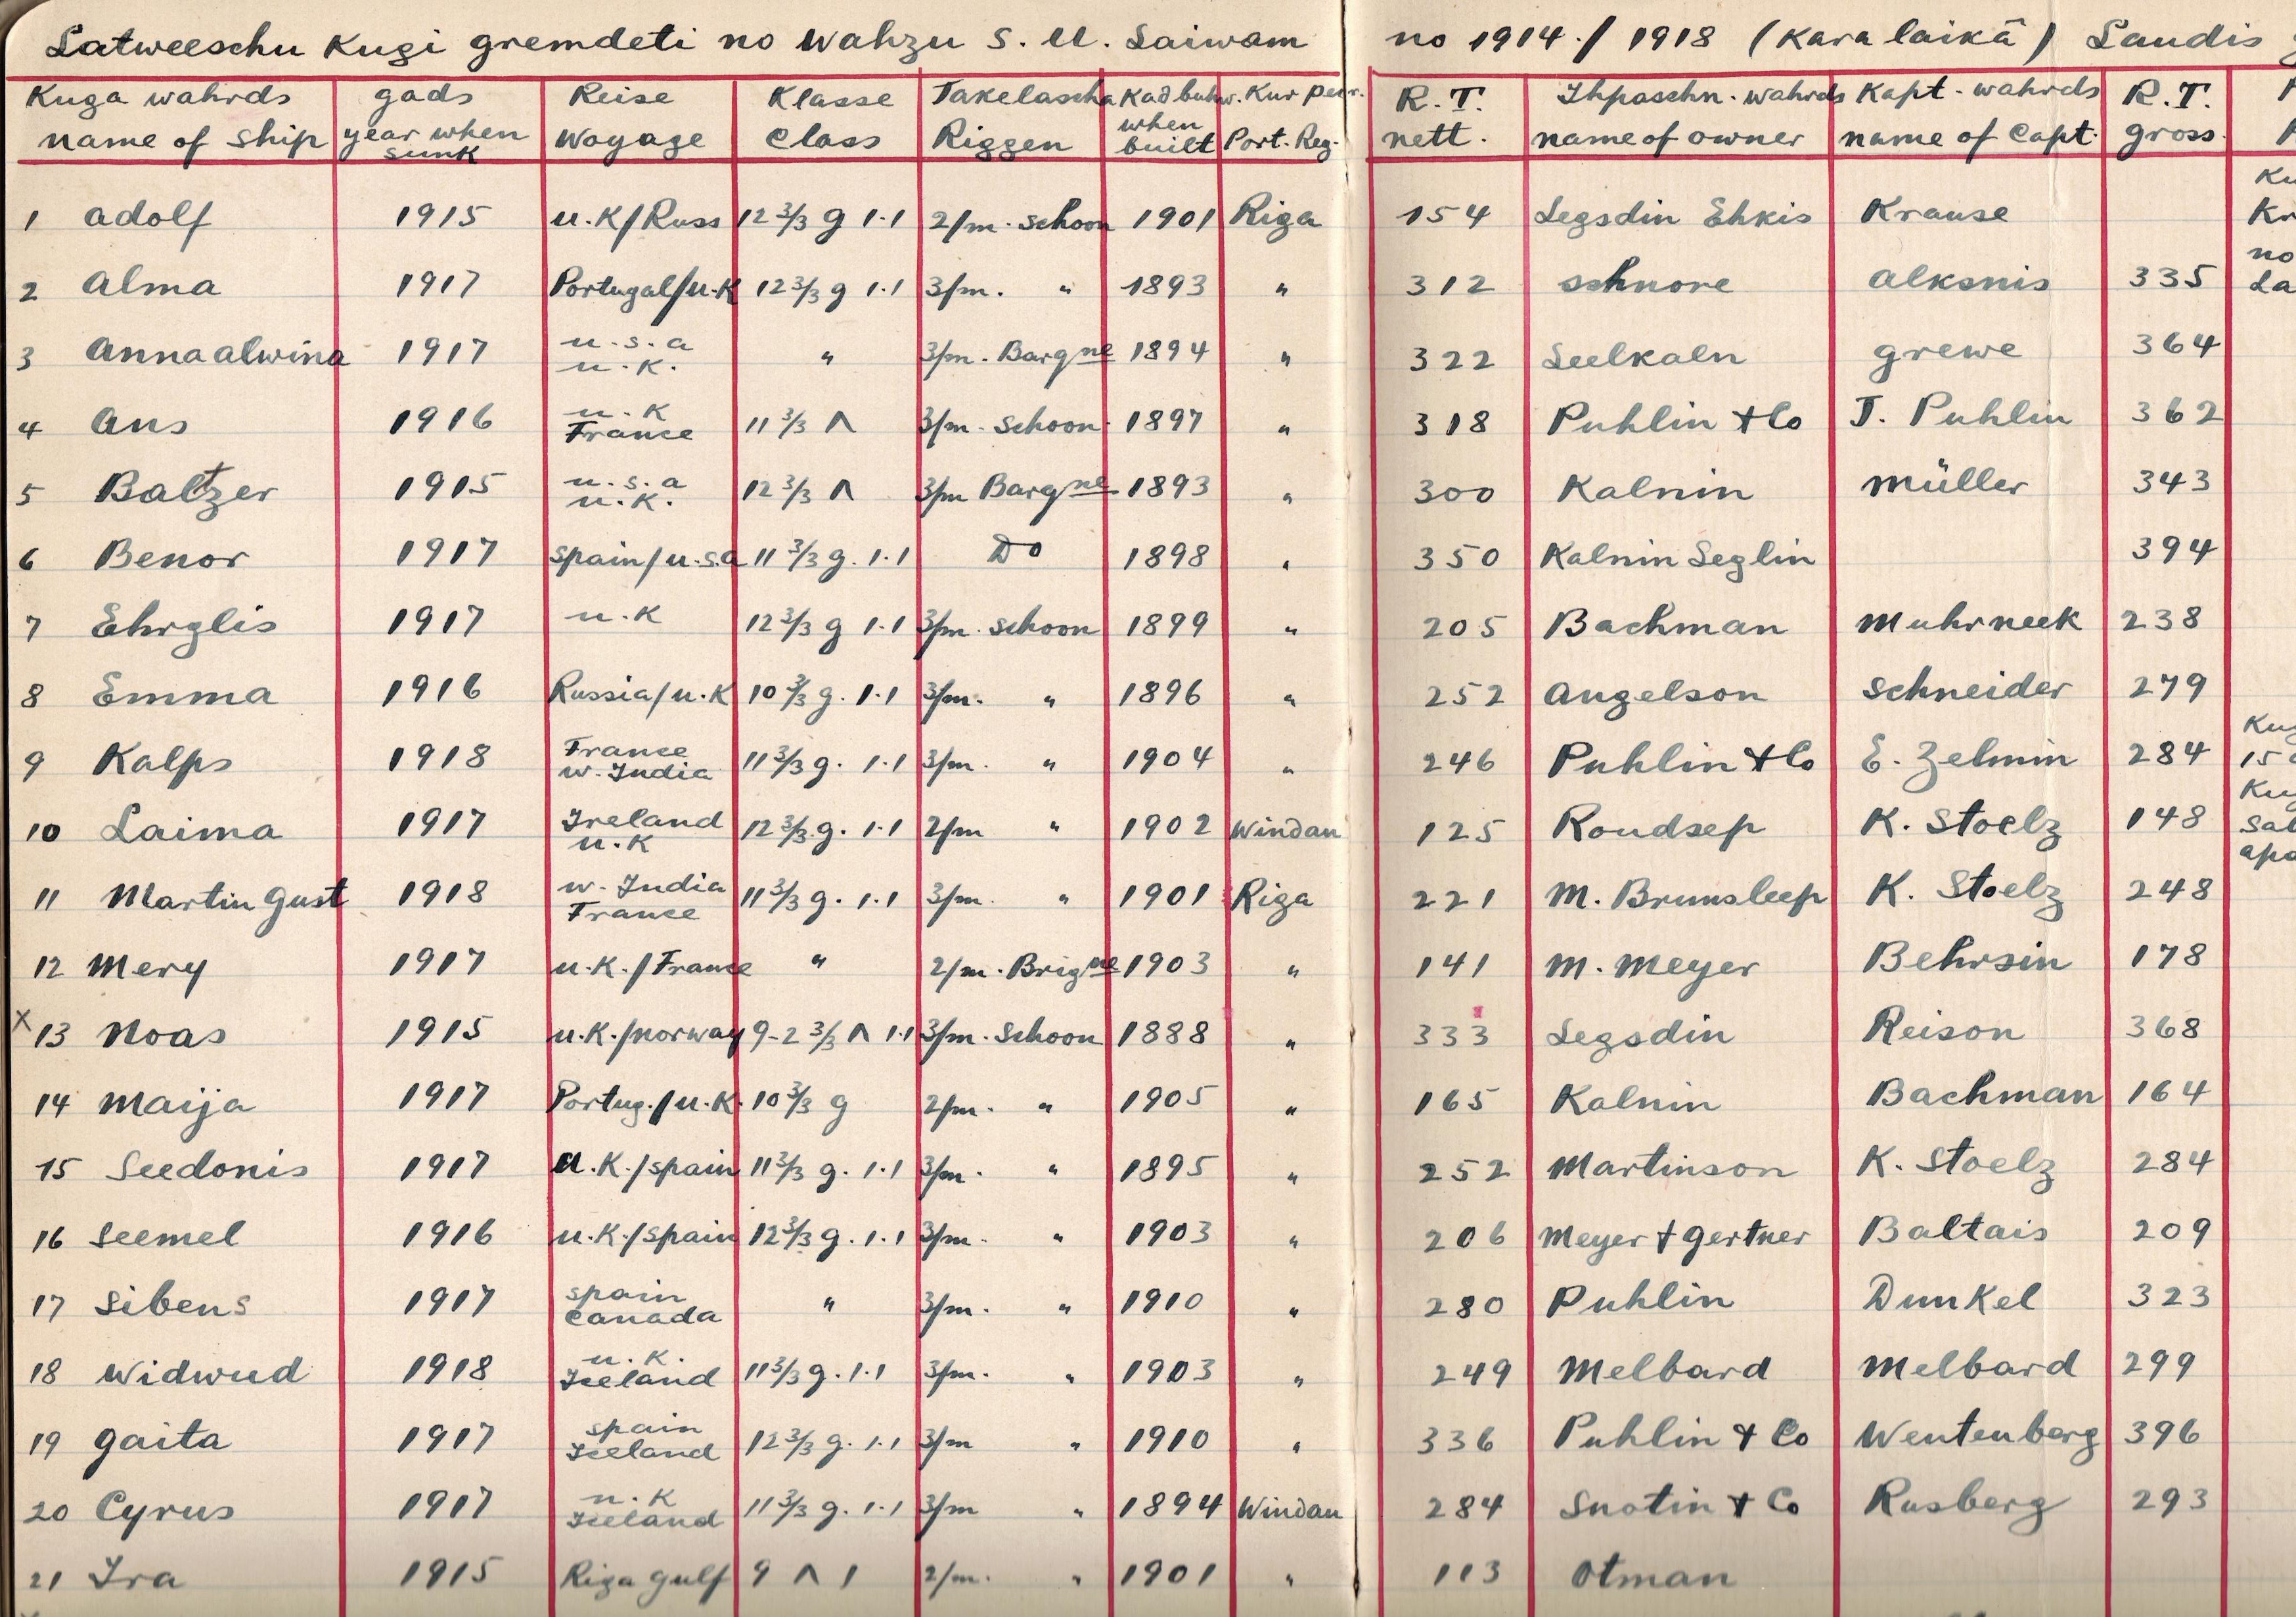 Latweeschu Kugi gremdeti no Wahzu S. U. Laiwam no 1914./1918 (Kara laikā) Laudis
Kuga wahrds gads Reise Klasse Takelascha Kad buhw. Kur peer. R.T. Ihpaschn. wahrds Kapt. wahrds R.T.
name of ship year when sunk Woyage Class Riggen when built Port. Reg. nett. name of owner name of Capt. gross.
1 Adolf 1915 U.K/Russ 12 3/3 g 1.1 2/m. Schoon 1901 Riga 154 Legsdin Ehkis Krause
2 Alma 1917 Portugal/U.K 12 3/3 g 1.1 3/m. " 1893 " 312 Schnore Alksnis 335
3 Anna Alwina 1917 U.S.A U.K. " 3/m. Barqne 1894 " 322 Seelkaln Grewe 364
4 Ans 1916 U.K France 11 3/3 Λ 3/m. Schoon. 1897 " 318 Puhlin + Co J. Puhlin 362
5 Baltzer 1915 U.S.A U.K. 12 3/3 Λ 3/m Barqne 1893 " 300 Kalnin Müller 343
6 Benor 1917 Spain/U.S.A 11 3/3 g. 1.1 Do 1898 " 350 Kalnin Seglin 394
7 Ehrglis 1917 U.K 12 3/3 g 1.1 3/m. Schoon 1899 " 205 Bachman Muhrneek 238
8 Emma 1916 Russia/U.K 10 3/3 g. 1.1 3/m. " 1896 " 252 Angelson Schneider 279
9 Kalps 1918 France W. India 11 3/3 g. 1.1 3/m. " 1904 " 246 Puhlin + Co E. Zelmin 284
10 Laima 1917 Ireland U.K 12 3/3 g. 1.1 2/m " 1902 Windau 125 Roudsep K. Stoelz 148
11 Martin Gust 1918 W. India France 11 3/3 g. 1.1 3/m. " 1901 Riga 221 M. Brumsleep K. Stoelz 248
12 Mery 1917 U.K./France " 2/m. Brigne 1903 " 141 M. Meyer Behrsin 178
x 13 Noas 1915 U.K./Norway 9-2 3/3 Λ 1.1 3/m. Schoon 1888 " 333 Legsdin Reison 368
14 Maija 1917 Portug./U.K. 10 3/3 g 2/m. " 1905 " 165 Kalnin Bachman 164
15 Seedonis 1917 U.K./Spain 11 3/3 g. 1.1 3/m. " 1895 " 252 Martinson K. Stoelz 284
16 Seemel 1916 U.K./Spain 12 3/3 g. 1.1 3/m. " 1903 " 206 Meyer + Gertner Baltais 209
17 Sibens 1917 Spain Canada " 3/m. " 1910 " 280 Puhlin Dunkel 323
18 Widwud 1918 U.K. Iceland 11 3/3 g. 1.1 3/m. " 1903 " 249 Melbard Melbard 299
19 Gaita 1917 Spain Iceland 12 3/3 g. 1.1 3/m " 1910 " 336 Puhlin + Co Wentenberg 396
20 Cyrus 1917 U.K Iceland 11 3/3 g. 1.1 3/m " 1894 Windau 284 Snotin + Co Rusberg 293
21 Ira 1915 Riga Gulf 9 Λ 1 2/m. " 1901 " 113 Otman